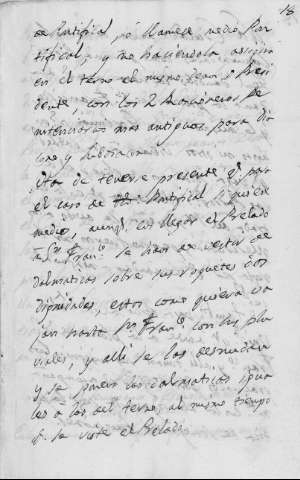 18
de Pontifical, ó llamese medio Pon-
tifical, y no haciendola assisten
en el terno el mismo Dean ó Presi
dente, con los 2 Racioneros Pe
nitenciarios mas antiguos para Dia
cono y Subdiacono
de tenerse presente q.e para
el caso de Pontifical ó quiera
medio, aunq.e al llegar el Prelado
à S.n Fran.co se han de vestir de
dalmaticas sobre sus roquetes dos
Dignidades, estos como quiera va
jan hasta S.n Fran.co con sus plu
viales, y alli se los desnudan
y se ponen las dalmaticas igua
les à las del terno, al mismo tiempo
q.e se viste el Prelado